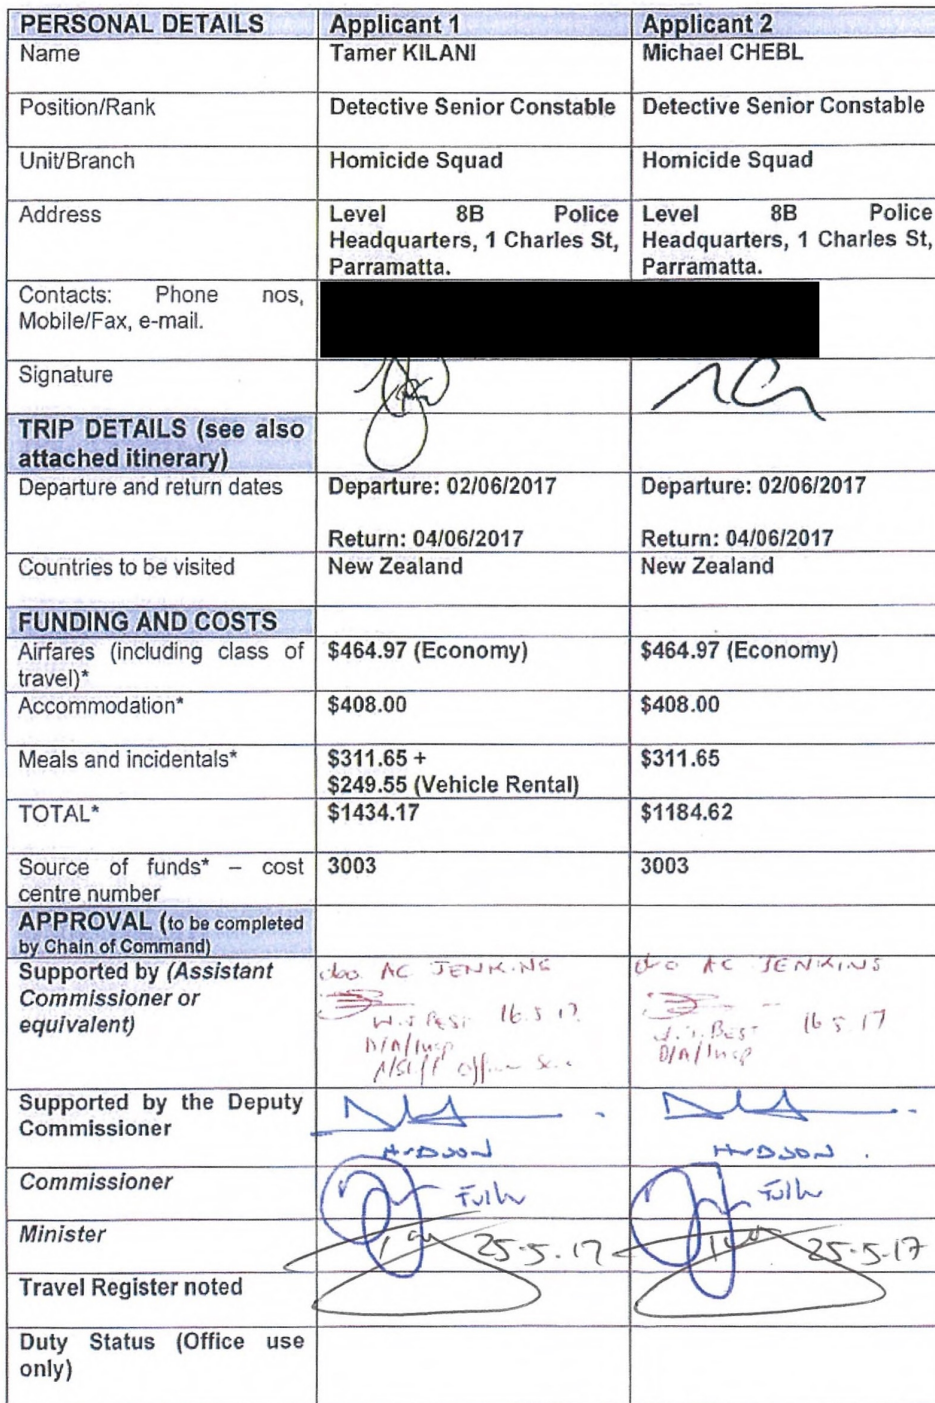 PERSONAL DETAILS Applicant 1 Applicant 2
Name Tamer KILANI Michael CHEBL
Position/Rank Detective Senior Constable Detective Senior Constable
Unit/Branch Homicide Squad Homicide Squad
Address Level 8B Police Level 8B Police
Headquarters, 1 Charles St, Headquarters, 1 Charles St,
Parramatta. Parramatta.
Contacts: Phone nos,
Mobile/Fax, e-mail.
Signature
TRIP DETAILS (see also
attached itinerary)
Departure and return dates Departure: 02/06/2017 Departure: 02/06/2017
Return: 04/06/2017 Return: 04/06/2017
Countries to be visited New Zealand New Zealand
FUNDING AND COSTS
Airfares (including class of $464.97 (Economy) $464.97 (Economy)
travel)*
Accommodation* $408.00 $408.00
Meals and incidentals* $311.65 + $311.65
$249.55 (Vehicle Rental)
TOTAL* $1434.17 $1184.62
Source of funds* – cost 3003 3003
centre number
APPROVAL (to be completed
by Chain of Command)
Supported by (Assistant AC JENKINS AC JENKINS
Commissioner or
equivalent) 16.5.17 16.5.17
D/A/Insp D/A/Insp
Supported by the Deputy
Commissioner
HUDSON HUDSON
Commissioner
Minister 25.5.17 25.5.17
Travel Register noted
Duty Status (Office use
only)